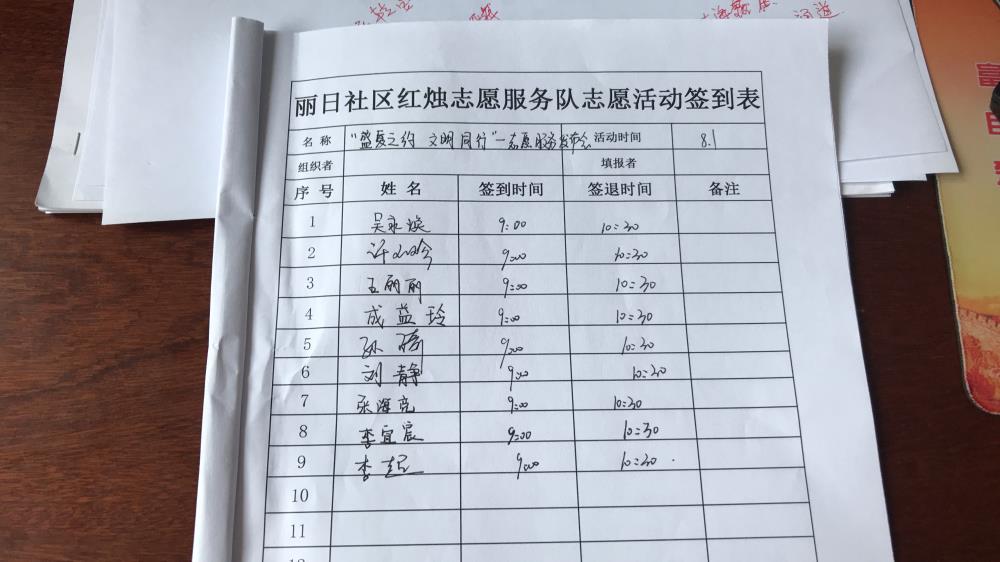 丽日社区红烛志愿服务队志愿活动签到表
名称 “盛夏之约 文明同行”—志愿服务发布会 活动时间 8.1
组织者 填报者
序号 姓名 签到时间 签退时间 备注
1 吴永焕 9:00 10:30
2 许 9:00 10:30
3 王丽丽 9:00 10:30
4 成益玲 9:00 10:30
5 孙 9:00 10:30
6 刘静 9:00 10:30
7 张海亮 9:00 10:30
8 李宜宸 9:00 10:30
9 李起 9:00 10:30
10
11
富